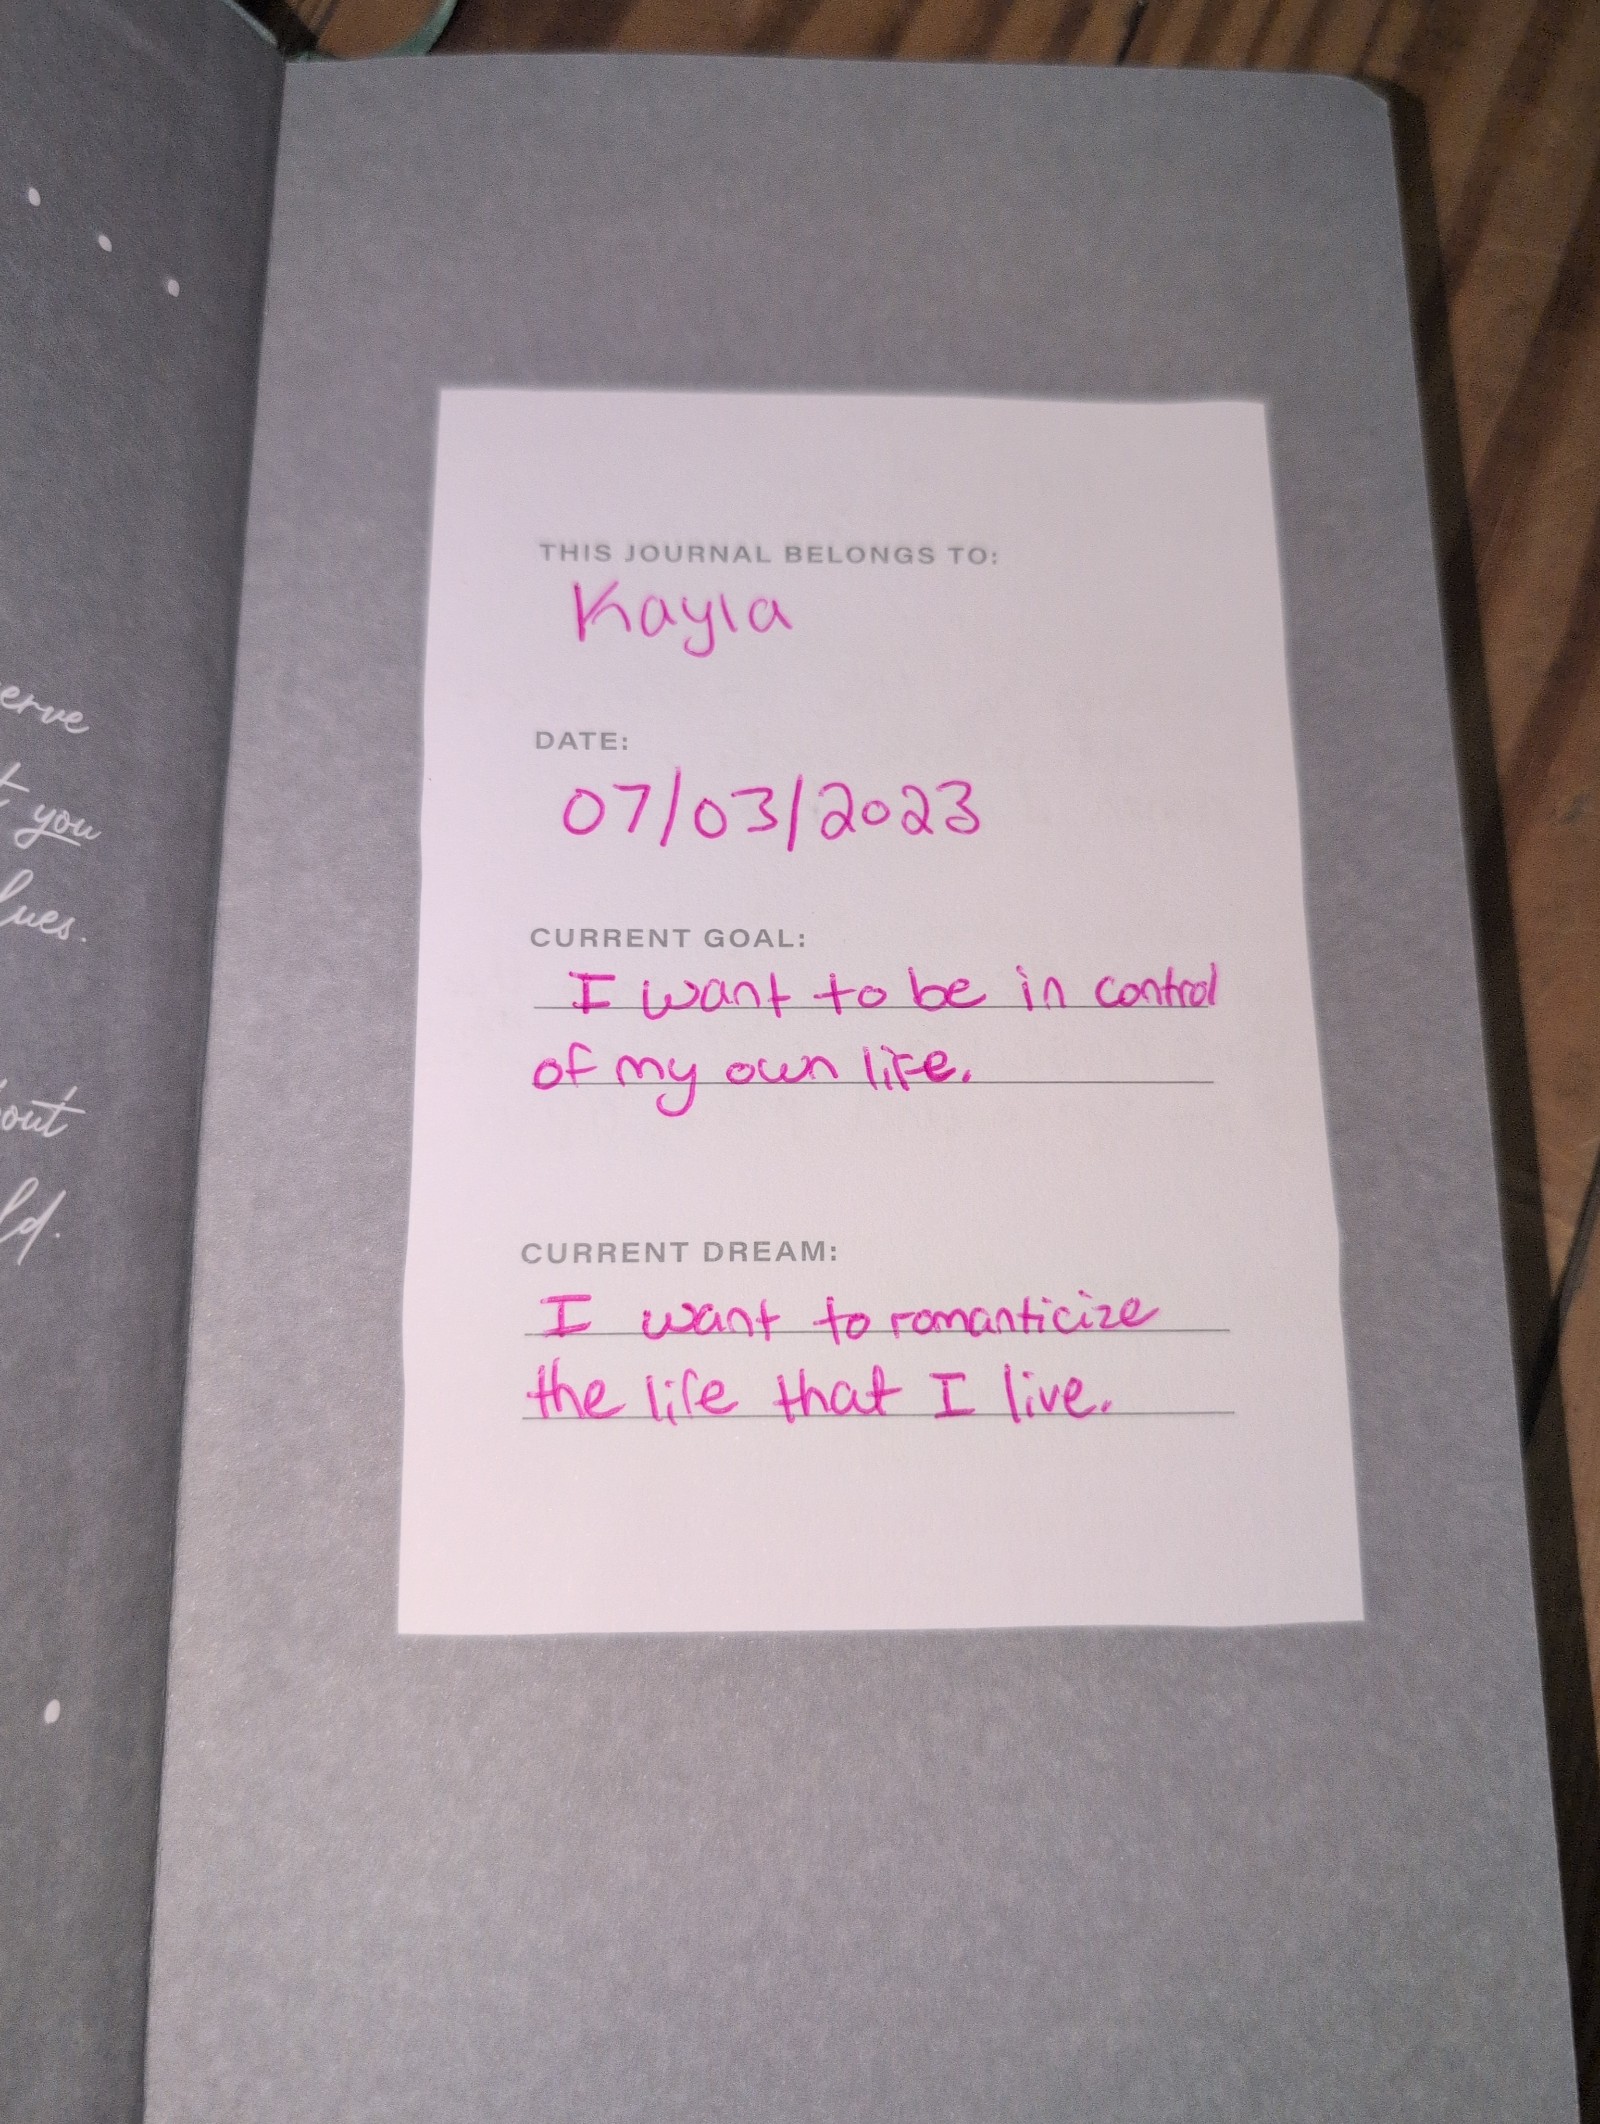 erve
you
lues.
out
ld.
THIS JOURNAL BELONGS TO:
Kayla
DATE:
07/03/2023
CURRENT GOAL:
I want to be in control
of my own life.
CURRENT DREAM:
I want to romanticize
the life that I live.